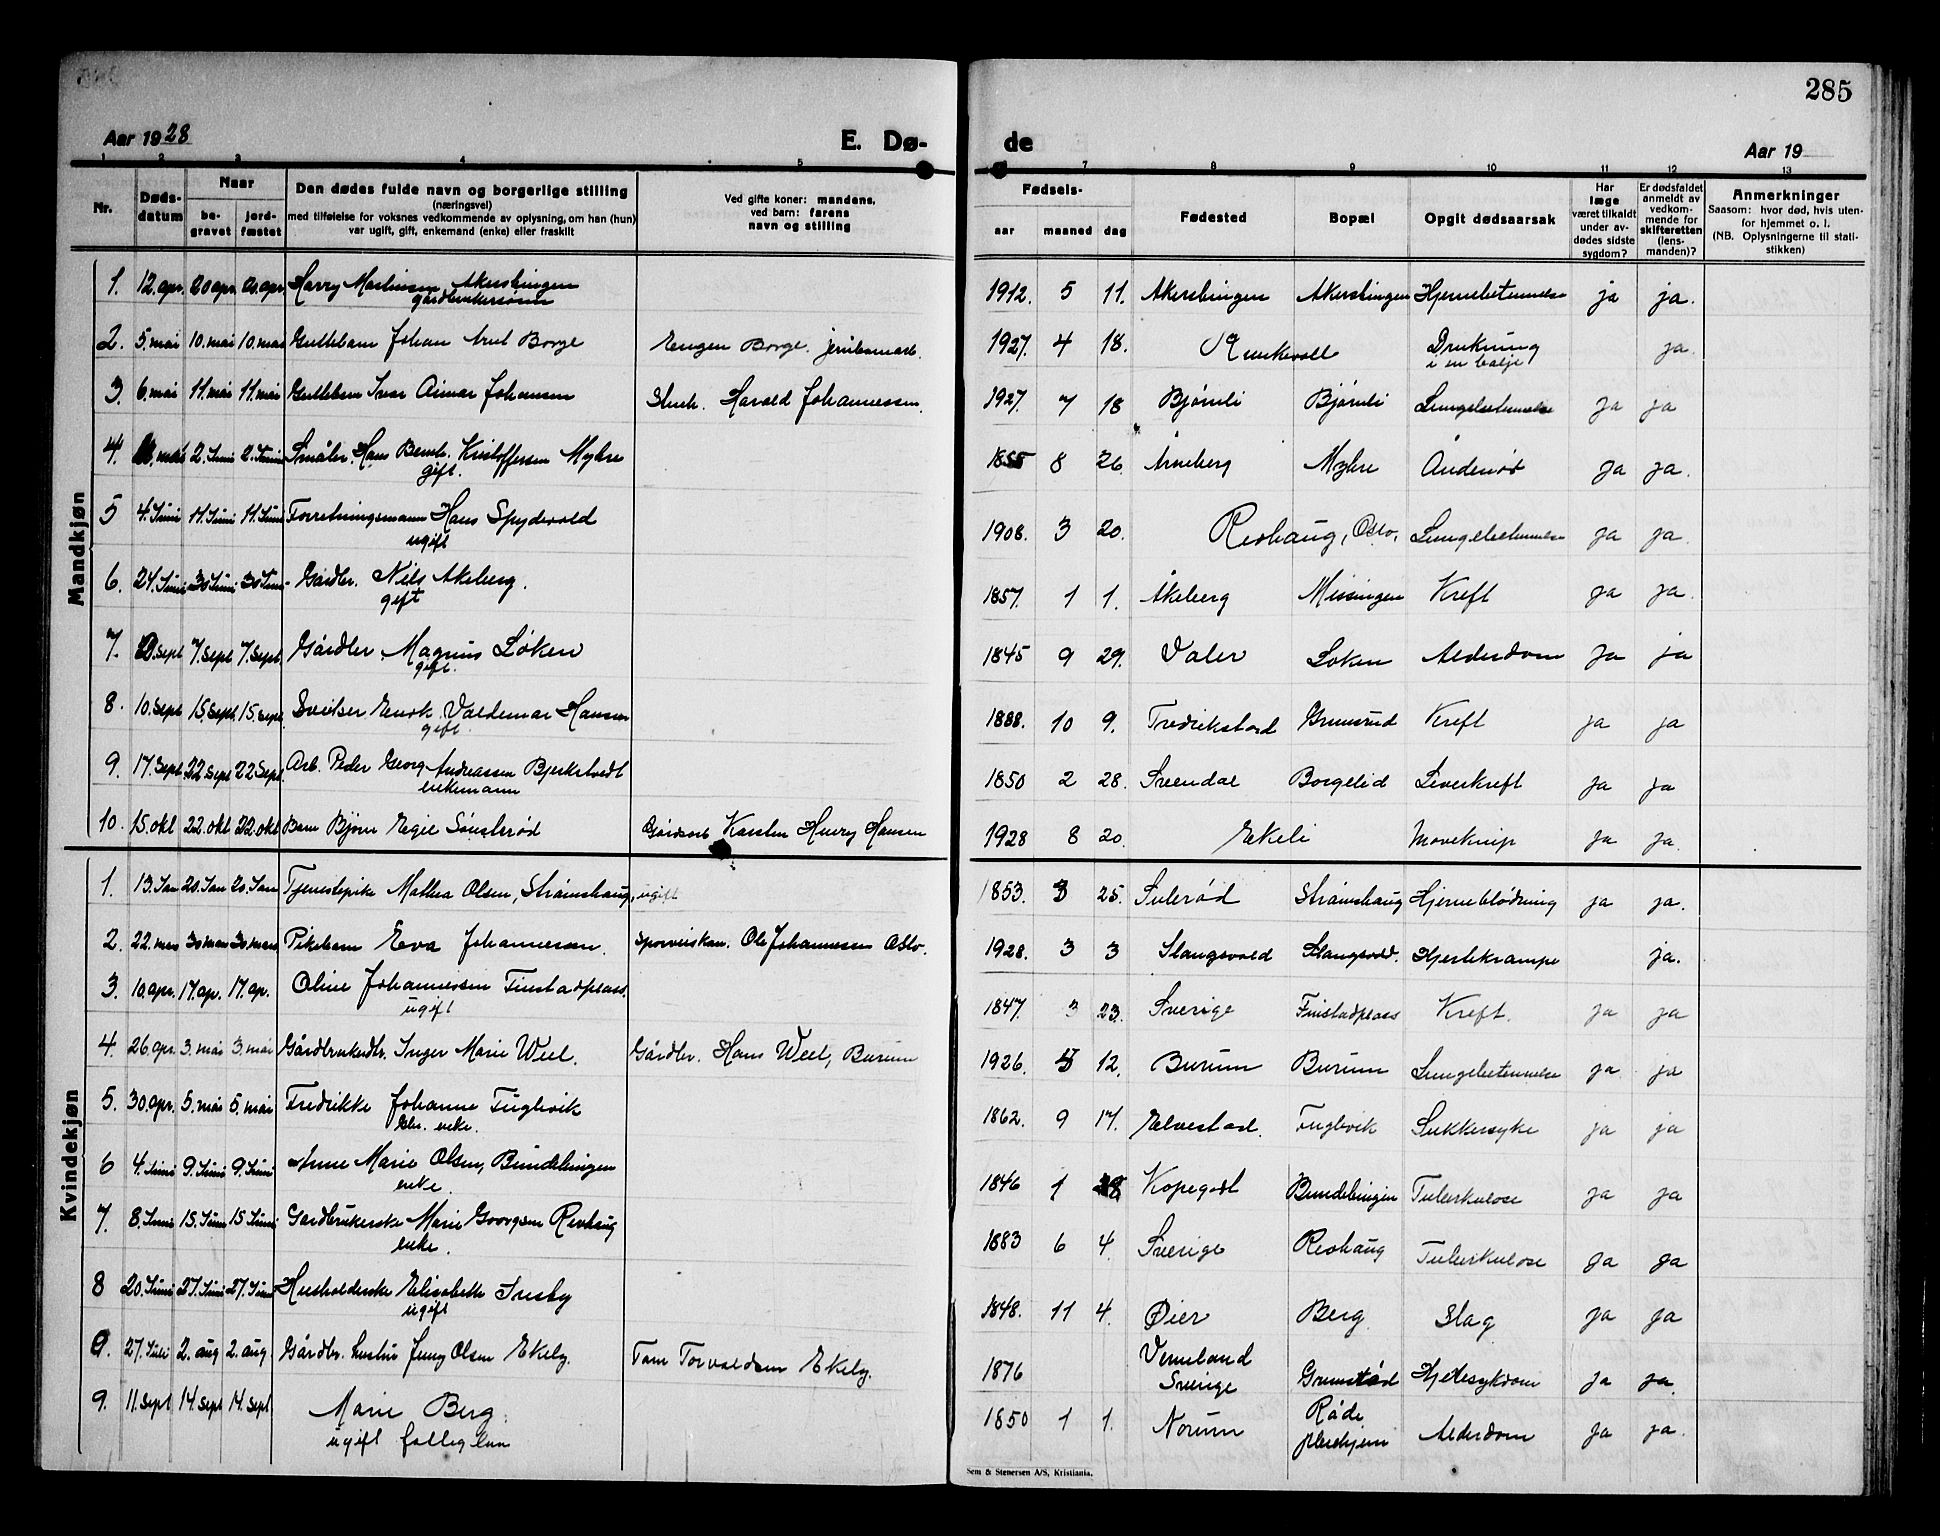 285
Aar 1928
E. Dø-
de
Aar 19
1 2 3 4 5 7 8 9 10 11 12 13
Nr. Døds-datum Naar be-gravet jord-fæstet Den dødes fulde navn og borgerlige stilling (næringsvei) med tilføielse for voksnes vedkommende av oplysning, om han (hun) var ugift, gift, enkemand (enke) eller fraskilt Ved gifte koner: mandens, ved barn: farens navn og stilling Fødsels- aar maaned dag Fødested Bopæl Opgit dødsaarsak Har læge været tilkaldt under av-dødes sidste sygdom? Er dødsfaldet anmeldt av vedkom-mende for skifteretten (lens-manden)? Anmerkninger Saasom: hvor død, hvis uten-for hjemmet o. l. (NB. Oplysningerne til stati-stikken)
Mandkjøn
1. 12. apr. 20 apr. 20. apr Harry Martinsen Akersbingen gårdbrukersønn 1912. 5 11. Akersbingen Akersbingen Hjernebetennelse ja ja.
2. 5. mai 10. mai 10. mai Guttebarn Johan Borge Eugen Borge. 1927. 4 18. Drukning i en balje ja.
3. 6. mai 11. mai 11. mai Guttebarn Ivar Johansen Harald Johannessen. 1927. 7 18 Bjørnli Bjørnli Lungebetennelse ja ja
4. mai 2. Juni 2. Juni Småbr. Hans Kristoffersen Myhre gift. 1855 8 26. Arneberg Myhre Åndenød ja ja.
5 4. Juni 11. Juni 11. Juni Forretningsmann Hans Spydevold ugift 1908. 3 20. Revhaug, Oslo, Lungebetennelse ja ja.
6. 24. Juni 30 Juni 30 Juni Gårdbr. Nils Akeberg. gift 1857. 1 1. Åkeberg Missingen Kreft ja ja.
7. sept 7. sept 7. sept. Gårdbr. Magnus Løken gift. 1845 9 29. Våler Løken Alderdom ja ja
8. 10. sept 15. sept. 15. sept Sveiser Enok Valdemar Hansen gift. 1888. 10 9. Fredrikstad Grimsrud Kreft ja ja
9. 17. sept 22 sept 22 sept. Arb. Peder Georg Andreassen Bjerkstvedt enkemann 1850 2 28. Svendal Borgelid Leverkreft ja ja
10. 15. okt 22. okt 22. okt Barn Bjørn Egil Sønsterød Karsten Henry Hansen 1928 8 20. Ekeli ja ja.
Kvindekjøn
1. 13. Jan 20. Jan 20. Jan Tjenestepike Mathea Olsen, Strømshaug, ugift 1853. 3 25. Sulerød Strømshaug Hjerneblødning ja ja.
2. 22. mars 30 mars 30 mars. Pikebarn Eva Johannessen. Ole Johannessen Oslo. 1928. 3 3 Slangsvold Slangsvold. Hjertekrampe ja.
3. 10. apr. 17. ap. 17. ap. Oline Johannessen Finstadplass. ugift 1847. 3 23. Sverige Finstadplass Kreft. ja ja
4. 26. apr. 3. mai 3. mai Inger Marie Weel. Gårdbr. Hans Weel, Burum 1926. 12. Burum Burum Lungebetennelse ja. ja
5. 30. apr. 5. mai 5. mai Fredrikke Johanne Fuglevik enke. 1862. 9 17. Elvestad. Fuglevik Sukkersyke ja ja
6 4. Juni 9. Juni 9. Juni Anne Marie Olsen, Bundebingen enke. 1846 1 28 Kopegodt Bundebingen Tuberkulose ja ja
7. 8. Juni 15. Juni 15 Juni Gårdbrukerske Marie Georgsen Revhaug enke. 1883 6 4. Sverige Revhaug Tuberkulose ja ja
8 20. Juni 27. Juni 27. Juni Husholderske Elisabeth ugift 1848. 11 4. Øier Berg Slag ja ja
9. 27. Juli 2. aug 2. aug Gårdbr. hustru Jenny Olsen Ekely. Torvaldsen Ekely. 1876 Vermeland Sverige Hjertesykdom ja ja.
9. 11. sept 14. sept 14. sept Marie Berg. ugift 1850 1 1. Norum Råde pleiehjem Alderdom ja ja.
Sem & Stenersen A/S, Kristiania.